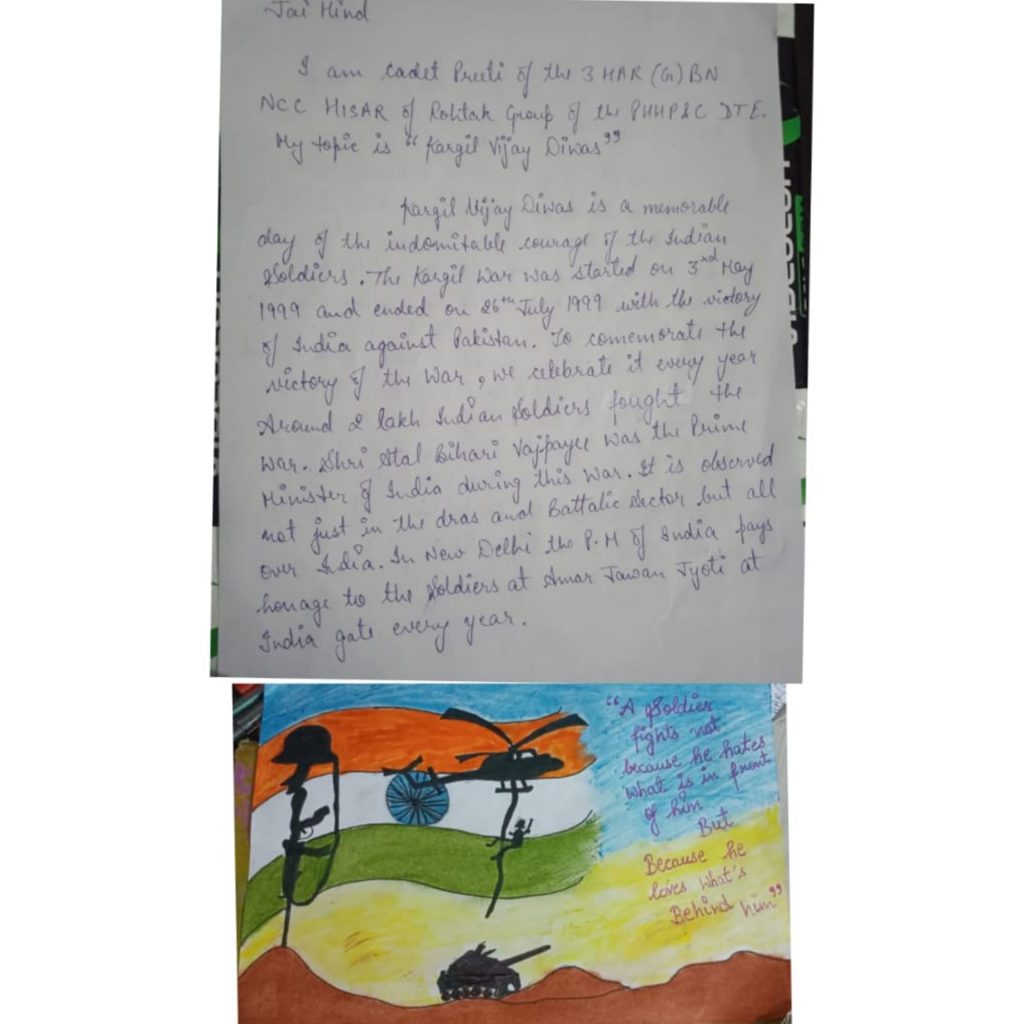 Jai Hind
I am Cadet Preeti of the 3 HAR (G) BN
NCC HISAR of Rohtak Group of the PHHP&C DTE.
My topic is "Kargil Vijay Diwas"
Kargil Vijay Diwas is a memorable
day of the indomitable courage of the Indian
Soldiers. The Kargil War was started on 3rd May
1999 and ended on 26th July 1999 with the victory
of India against Pakistan. To comemorate the
victory of the War, we celebrate it every year
Around 2 lakh Indian Soldiers fought the
War. Shri Atal Bihari Vajpayee was the Prime
Minister of India during this War. It is observed
not just in the dras and Battalic sector but all
over India. In New Delhi the P.M of India pays
homage to the Soldiers at Amar Jawan Jyoti at
India gate every year.
"A Soldier
fights not
because he hates
what is in front
of him
But
Because he
loves what's
Behind him"